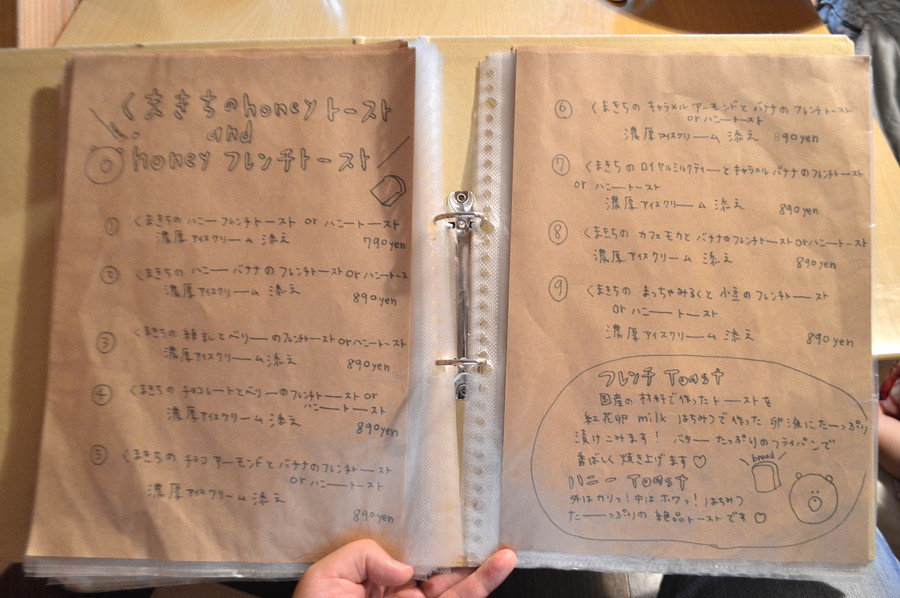 くまきちのhoneyトースト
and
honey フレンチトースト
① くまきちの ハニーフレンチトースト or ハニートースト
濃厚アイスクリーム 添え
790yen
② くまきちの ハニーバナナのフレンチトースト or ハニートースト
濃厚アイスクリーム 添え
890yen
③ くまきちの 練乳とベリーのフレンチトースト or ハニートースト
濃厚アイスクリーム 添え
890yen
④ くまきちの チョコレートとベリーのフレンチトースト or
ハニートースト
濃厚アイスクリーム 添え
890yen
⑤ くまきちの チョコアーモンドとバナナのフレンチトースト
or ハニートースト
濃厚アイスクリーム 添え
890yen
⑥ くまきちの キャラメルアーモンドとバナナのフレンチトースト
or ハニートースト
濃厚アイスクリーム 添え 890yen
⑦ くまきちの ロイヤルミルクティーとキャラメルバナナのフレンチトースト
or ハニートースト
濃厚アイスクリーム 添え
890yen
⑧ くまきちの カフェモカとバナナのフレンチトースト or ハニートースト
濃厚アイスクリーム 添え 890yen
⑨ くまきちの まっちゃみるくと小豆のフレンチトースト
or ハニートースト
濃厚アイスクリーム 添え 890yen
フレンチ Toast
国産の材料で作ったトーストを
紅花卵 milk はちみつで作った 卵液にたーっぷり
漬けこみます! バターたっぷりのフライパンで
香ばしく焼き上げます♡
bread
ハニー Toast
外はカリっ!中はホワっ! はちみつ
たーーっぷりの 絶品トーストです♡